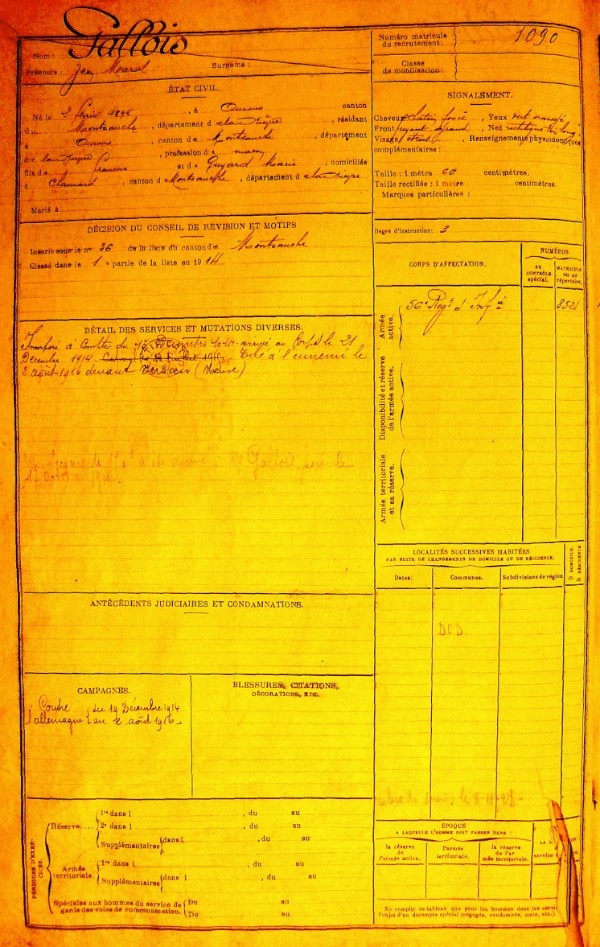 Nom : Gallois
Prénoms : Jean Marcel Surnoms :
Numéro matricule du recrutement : 1090
Classe de mobilisation :
ÉTAT CIVIL.
Né le 2 1895, à Ouroux canton
de Montsauche, département de la Nièvre, résidant
à Ouroux, canton de Montsauche, département
de la Nièvre, profession de
fils de François et de Guyard Marie, domiciliés
à Chaumard, canton de Montsauche, département de la Nièvre
Marié à
SIGNALEMENT.
Cheveux châtain foncé, Yeux vert orangé
Front fuyant grand, Nez rectiligne
Visage, Renseignements physionomiques
complémentaires :
Taille : 1 mètre 60 centimètres.
Taille rectifiée : 1 mètre centimètres.
Marques particulières :
Degré d'instruction : 3
DÉCISION DU CONSEIL DE RÉVISION ET MOTIFS
Inscrit sous le n° 36 de la liste du canton de Montsauche
Classé dans la 1 e partie de la liste en 1914
CORPS D'AFFECTATION.
NUMÉROS
AU CONTRÔLE SPÉCIAL.
MATRICULE OU AU RÉPERTOIRE.
Armée active.
56e Regt d'Infie
Disponibilité et réserve de l'armée active.
Armée territoriale et sa réserve.
DÉTAIL DES SERVICES ET MUTATIONS DIVERSES.
Incorporé à compter du 19 Décembre 1914 arrivé au Corps le 21
Décembre 1914. Tué à l'ennemi le
2 août 1916 devant Verdun (Meuse)
Gallois
LOCALITÉS SUCCESSIVES HABITÉES
PAR SUITE DE CHANGEMENTS DE DOMICILE OU DE RÉSIDENCE.
Dates.
Communes.
Subdivisions de région
D DOMICILE.
R RÉSIDENCE
DCD
ANTÉCÉDENTS JUDICIAIRES ET CONDAMNATIONS.
CAMPAGNES.
Contre l'allemagne du 19 Décembre 1914
au 2 août 1916
BLESSURES, CITATIONS,
DÉCORATIONS, ETC.
PÉRIODES D'EXERCICES.
Réserve
1re dans l , du au
2e dans l , du au
Supplémentaires dans l , du au
du au
Armée territoriale.
1re dans l , du au
Supplémentaires dans l , du au
du au
Spéciales aux hommes du service de garde des voies de communication.
Du au
Du au
ÉPOQUE
À LAQUELLE L'HOMME DOIT PASSER DANS :
la réserve de l'armée active.
l'armée territoriale.
la réserve de l'armée territoriale.
Ne remplir ce tableau que pour les hommes dont les services